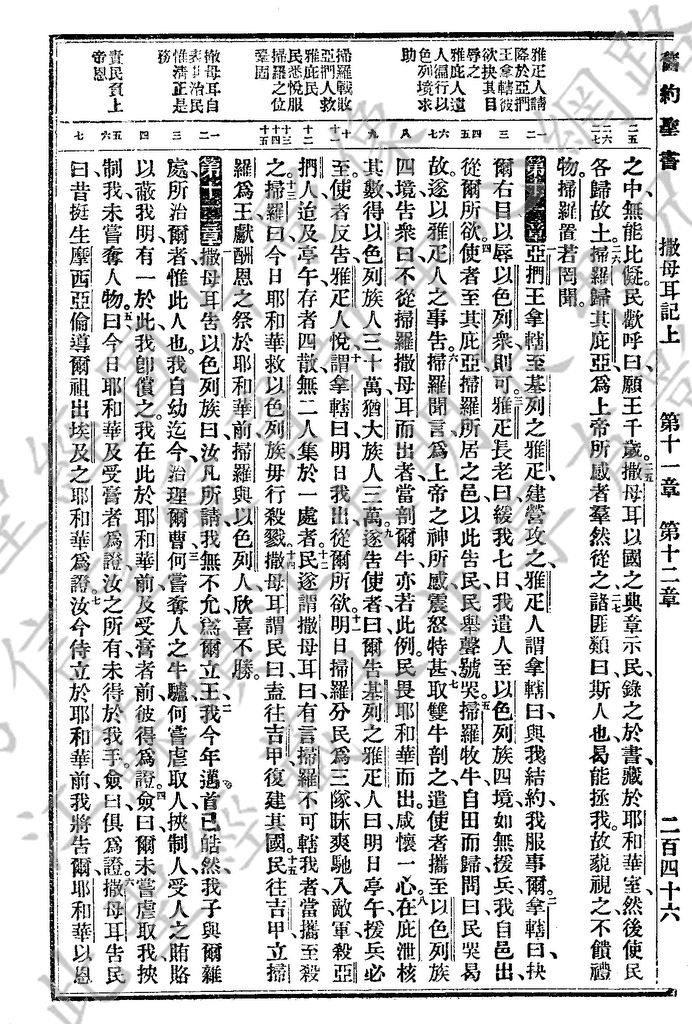 舊約聖書　撒母耳記上　第十一章　第十二章　二百四十六
雅疋人請
降於亞捫
王拿轄彼
欲抉其目
辱之
雅庇人遣
人徧行以
色列境求
助
掃羅戰敗
亞捫人救
雅庇民
民悉悅服
掃羅之位
鞏固
撒母耳自
表其治民
惟清正是
務
責民負上
帝恩
二五
二六
二七
一二
三
四五
六七
八
九
十
十一
十二
十三
十四
十五
一二
三
四
五六
七
之中無能比儗民歡呼曰願王千歲二五撒母耳以國之典章示民錄之於書藏於耶和華室然後使民
各歸故土二六掃羅歸其庇亞為上帝所感者羣然從之二七諸匪類曰斯人也曷能拯我故藐視之不饋禮
物掃羅置若罔聞
第十一章亞捫王拿轄至基列之雅疋建營攻之雅疋人謂拿轄曰與我結約我服事爾二拿轄曰抉
爾右目以辱以色列衆則可三雅疋長老曰緩我七日我遣人至以色列族四境如無援兵我自邑出
從爾所欲四使者至其庇亞掃羅所居之邑以此告民民舉聲號哭五掃羅牧牛自田而歸問曰民哭曷
故遂以雅疋人之事告六掃羅聞言為上帝之神所感震怒特甚七取雙牛剖之遣使者攜至以色列族
四境告衆曰不從掃羅撒母耳而出者當剖爾牛亦若此例民畏耶和華而出咸懷一心八在庇泄核
其數得以色列族人三十萬猶大族人三萬九遂告使者曰爾告基列之雅疋人曰明日亭午援兵必
至使者反告雅疋人悅十謂拿轄曰明日我出從爾所欲十一明日掃羅分民為三隊昧爽馳入敵軍殺亞
捫人迨及亭午存者四散無二人集於一處者十二民遂謂撒母耳曰有言掃羅不可轄我者當攜至殺
之十三掃羅曰今日耶和華救以色列族毋行殺戮十四撒母耳謂民曰盍往吉甲復建其國十五民往吉甲立掃
羅為王獻酬恩之祭於耶和華前掃羅與以色列人欣喜不勝
第十二章撒母耳告以色列族曰汝凡所請我無不允為爾立王二我今年邁首已皓然我子與爾雜
處所治爾者惟此人也我自幼迄今治理爾曹三何嘗奪人之牛驢何嘗虐取人挾制人受人之賄賂
以蔽我明有一於此我卽償之我在此於耶和華前及受膏者前彼得為證四僉曰爾未嘗虐取我挾
制我未嘗奪人物五曰今日耶和華及受膏者為證汝之所有未得於我手僉曰俱為證六撒母耳告民
曰昔挺生摩西亞倫導爾祖出埃及之耶和華為證七汝今待立於耶和華前我將告爾耶和華以恩